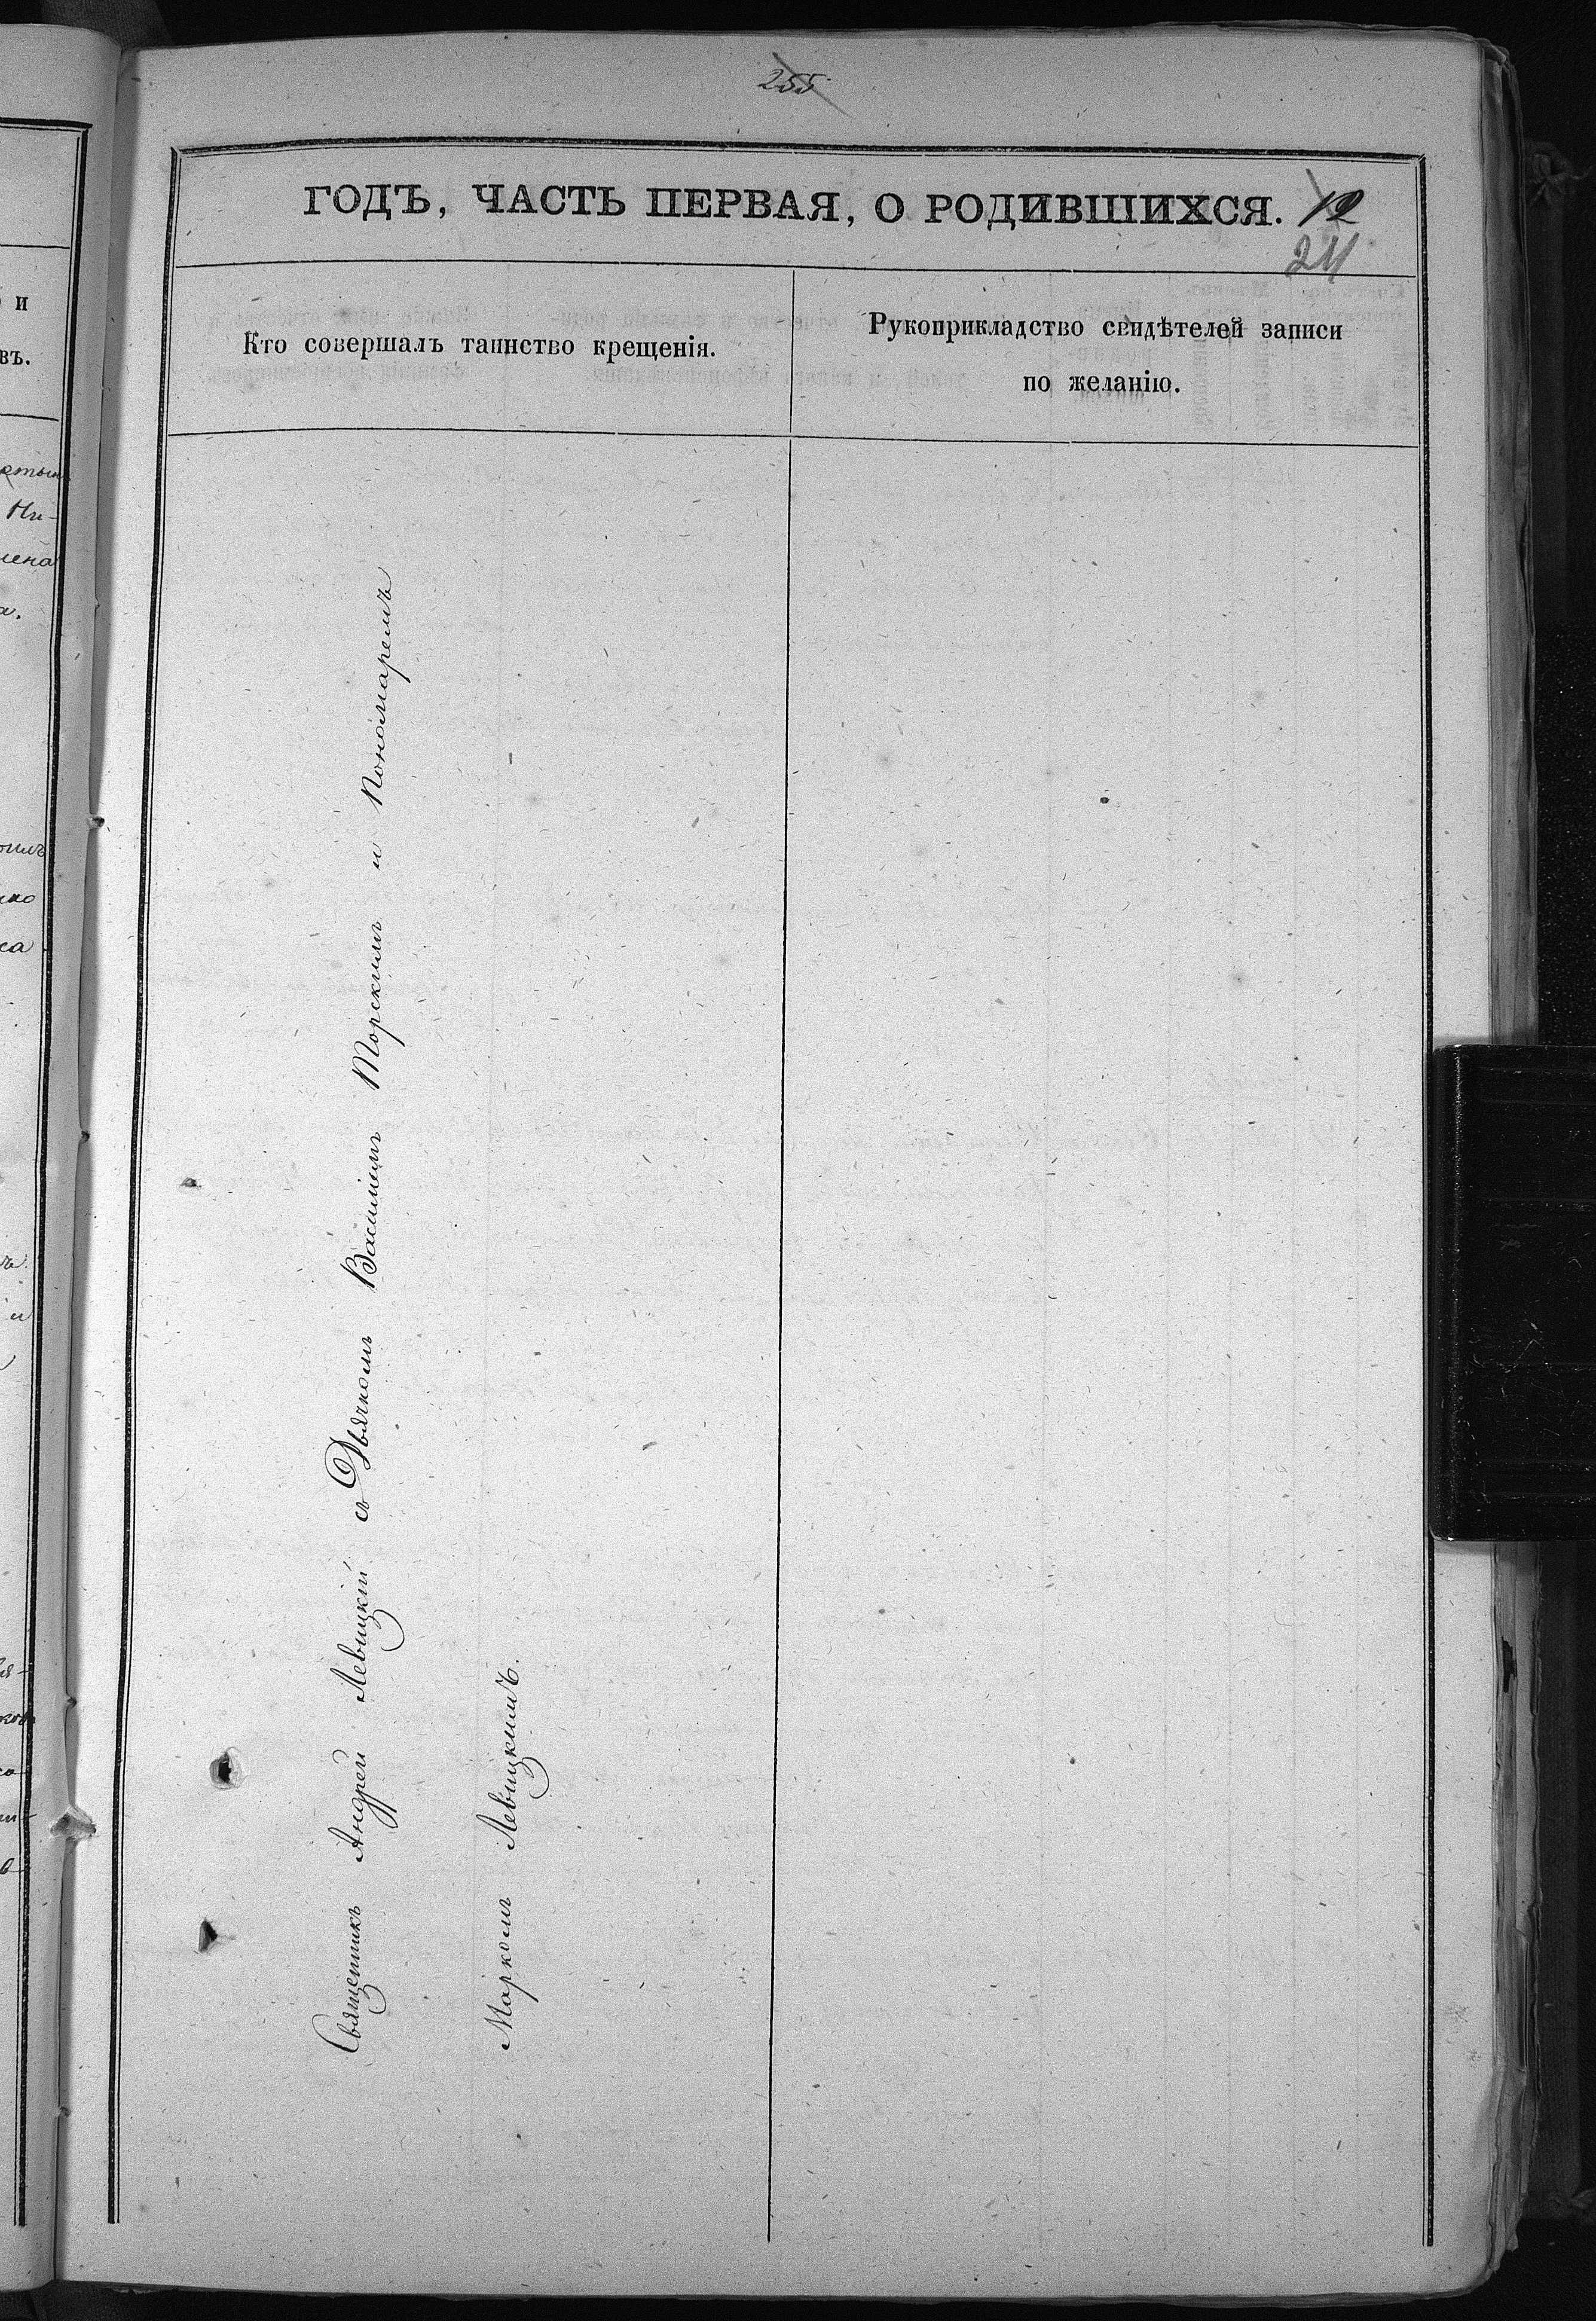 255
ГОДЪ, ЧАСТЬ ПЕРВАЯ, О РОДИВШИХСЯ. 12
24
Кто совершалъ таинство крещенія.
Рукоприкладство свидѣтелей записи
по желанію.
Священникъ Андрей Левицкій съ Дьячкомъ Василіемъ Торскимъ и Пономаремъ
Маркомъ Левицкимъ.
и
въ.